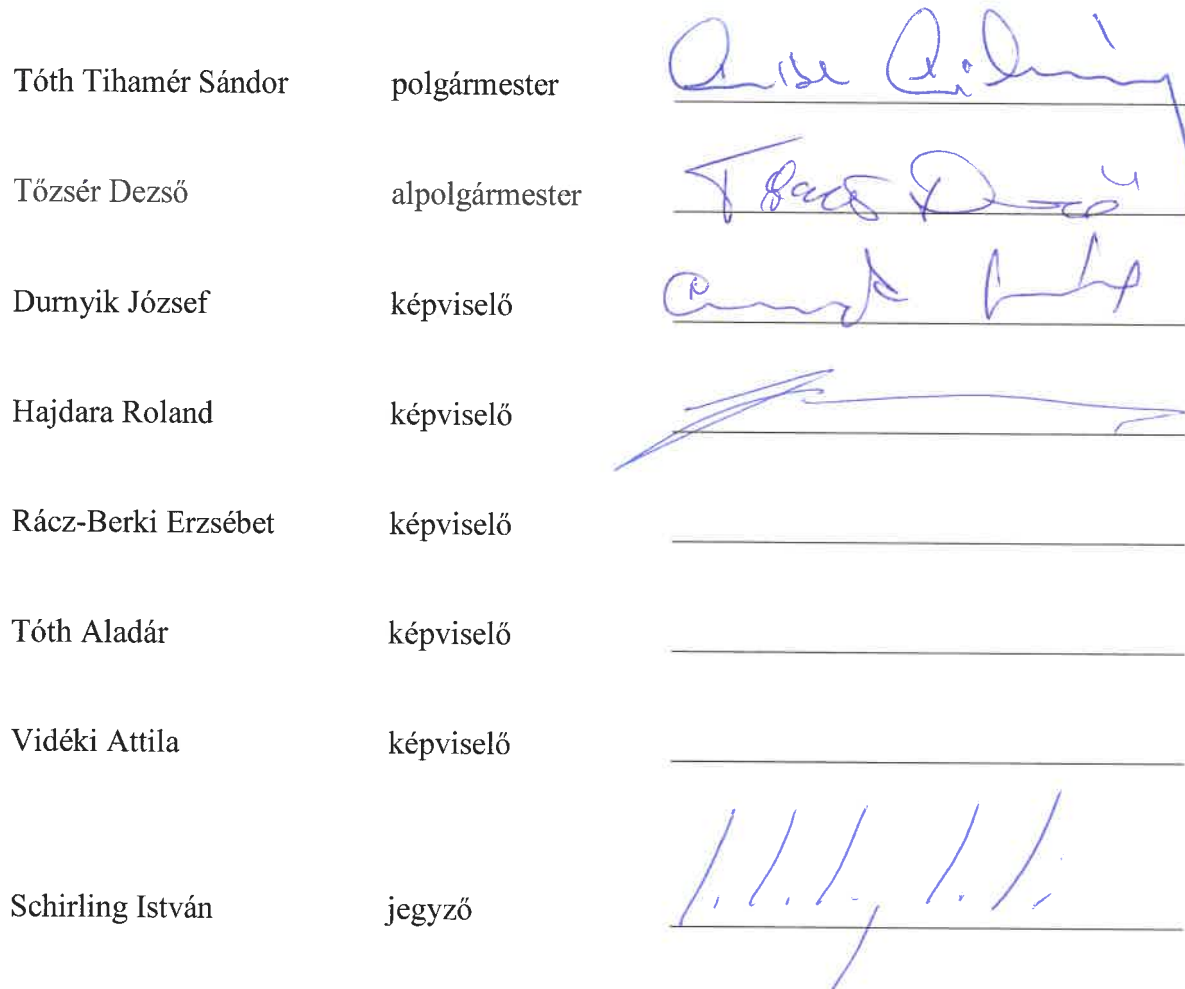 Tóth Tihamér Sándor polgármester
Tőzsér Dezső alpolgármester
Durnyik József képviselő
Hajdara Roland képviselő
Rácz-Berki Erzsébet képviselő
Tóth Aladár képviselő
Vidéki Attila képviselő
Schirling István jegyző